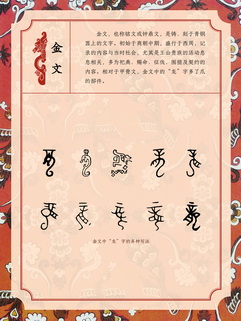 金文
金文，也称铭文或钟鼎文，是铸、刻于青铜
器上的文字，初始于商朝中期，盛行于西周，记
录的内容与当时社会，尤其是王公贵族的活动息
息相关，多为祀典、赐命、征伐、围猎及契约的
内容。相对于甲骨文，金文中的“龙”字多了爪
的部件。
金文中“龙”字的各种写法